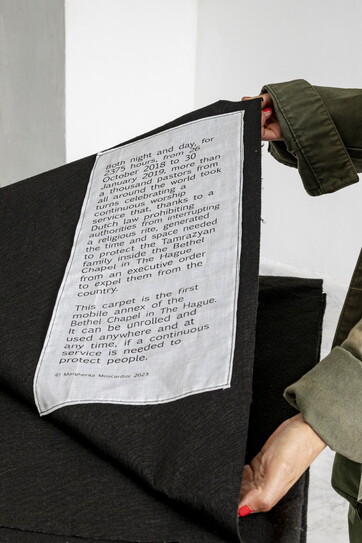 Both night and day, for
2375 hours, from 26
October 2018 to 30
January 2019, more than
a thousand pastors from
all around the world took
turns celebrating a
continuous worship
service that, thanks to a
Dutch law prohibiting
authorities from interrupting
a religious rite, generated
the time and space needed
to protect the Tamrazyan
family inside the Bethel
Chapel in The Hague
from an executive order
to expel them from the
country.
This carpet is the first
mobile annex of the
Bethel Chapel in The Hague.
It can be unrolled and
used anywhere and at
any time, if a continuous
service is needed to
protect people.
© Margherita Moscardini 2023